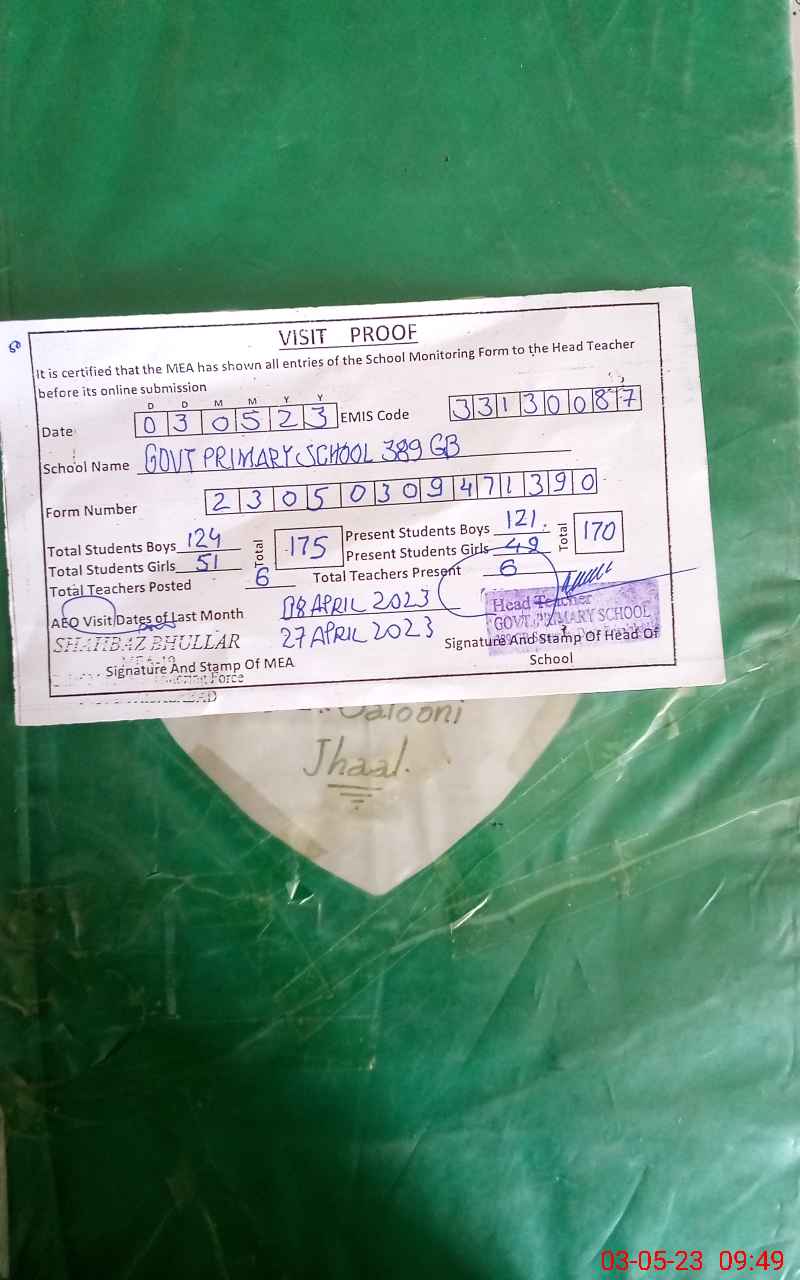 VISIT PROOF
It is certified that the MEA has shown all entries of the School Monitoring Form to the Head Teacher
before its online submission
D D M M Y Y
Date 0 3 0 5 2 3 EMIS Code 3 3 1 3 0 0 8 7
School Name GOVT PRIMARY SCHOOL 389 GB
Form Number 2 3 0 5 0 3 0 9 4 7 1 3 9 0
Total Students Boys 124 Total 175 Present Students Boys 121 Total 170
Total Students Girls 51 Present Students Girls 49
Total Teachers Posted 6 Total Teachers Present 6
AEO Visit Dates of Last Month 08 APRIL 2023
27 APRIL 2023
Head Teacher
GOVT. PRIMARY SCHOOL
SHAHBAZ BHULLAR
Signature And Stamp Of MEA
Signature And Stamp Of Head Of
School
Force
Jhaal.
03-05-23 09:49